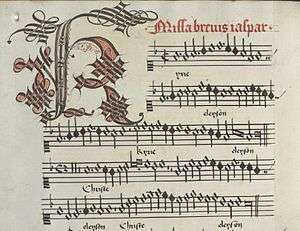 Missa brevis iaspar
K
yrie
eleyson
Kyrie eleyson
Christe
eleyson Christe eleyson